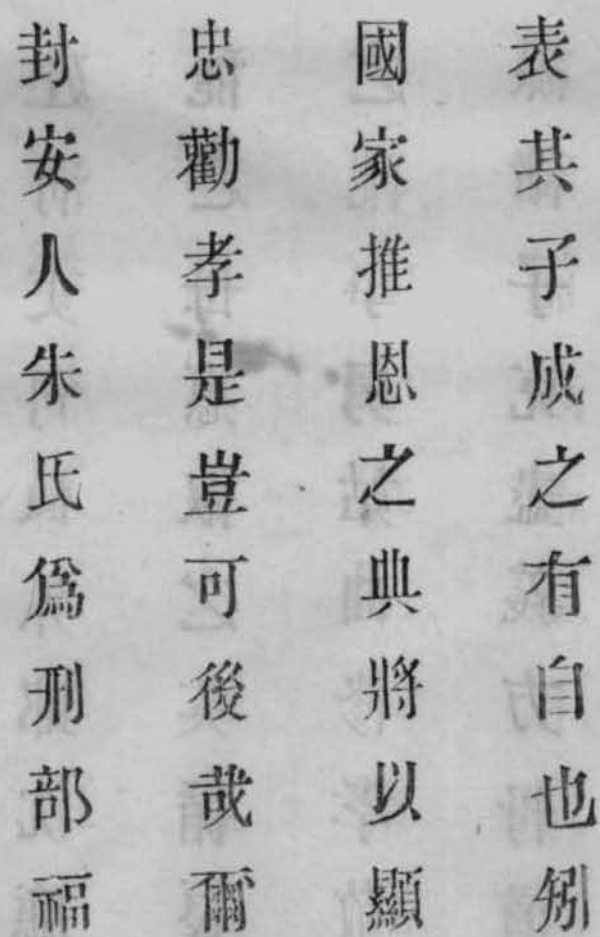 表其子成之有自也矧
國家推恩之典將以顯
忠勸孝是豈可後哉爾
封安人朱氏爲刑部福